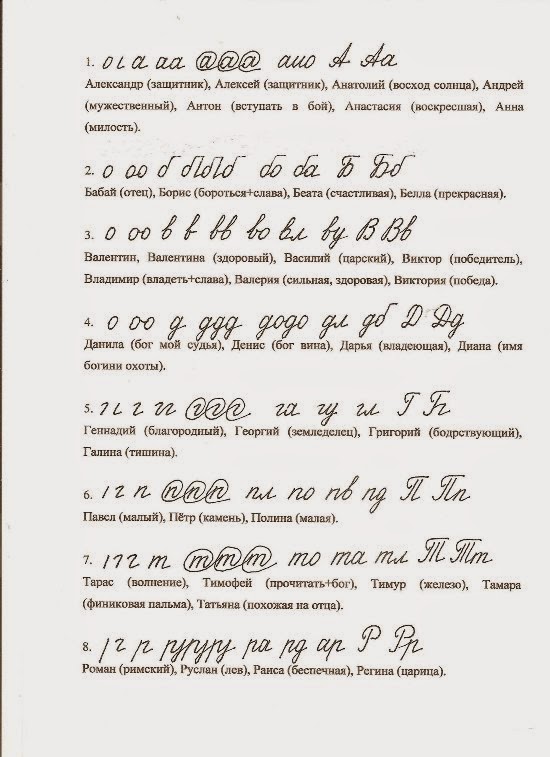 1. о ι а аа а а а аио А Аа
Александр (защитник), Алексей (защитник), Анатолий (восход солнца), Андрей
(мужественный), Антон (вступать в бой), Анастасия (воскресшая), Анна
(милость).
2. о оо б ббб бо ба Б Бб
Бабай (отец), Борис (бороться+слава), Беата (счастливая), Белла (прекрасная).
3. о оо в в вв во вл ву В Вв
Валентин, Валентина (здоровый), Василий (царский), Виктор (победитель),
Владимир (владеть+слава), Валерия (сильная, здоровая), Виктория (победа).
4. о оо д ддд додо дл дб Д Дд
Данила (бог мой судья), Денис (бог вина), Дарья (владеющая), Диана (имя
богини охоты).
5. г гг г г г га гу гл Г
Геннадий (благородный), Георгий (земледелец), Григорий (бодрствующий),
Галина (тишина).
6. г п п п п пл по пв пд П Пп
Павел (малый), Пётр (камень), Полина (малая).
7. г т т т т то та тл Т Тт
Тарас (волнение), Тимофей (прочитать+бог), Тимур (железо), Тамара
(финиковая пальма), Татьяна (похожая на отца).
8. г р рурур ра рд ар Р Рр
Роман (римский), Руслан (лев), Раиса (беспечная), Регина (царица).